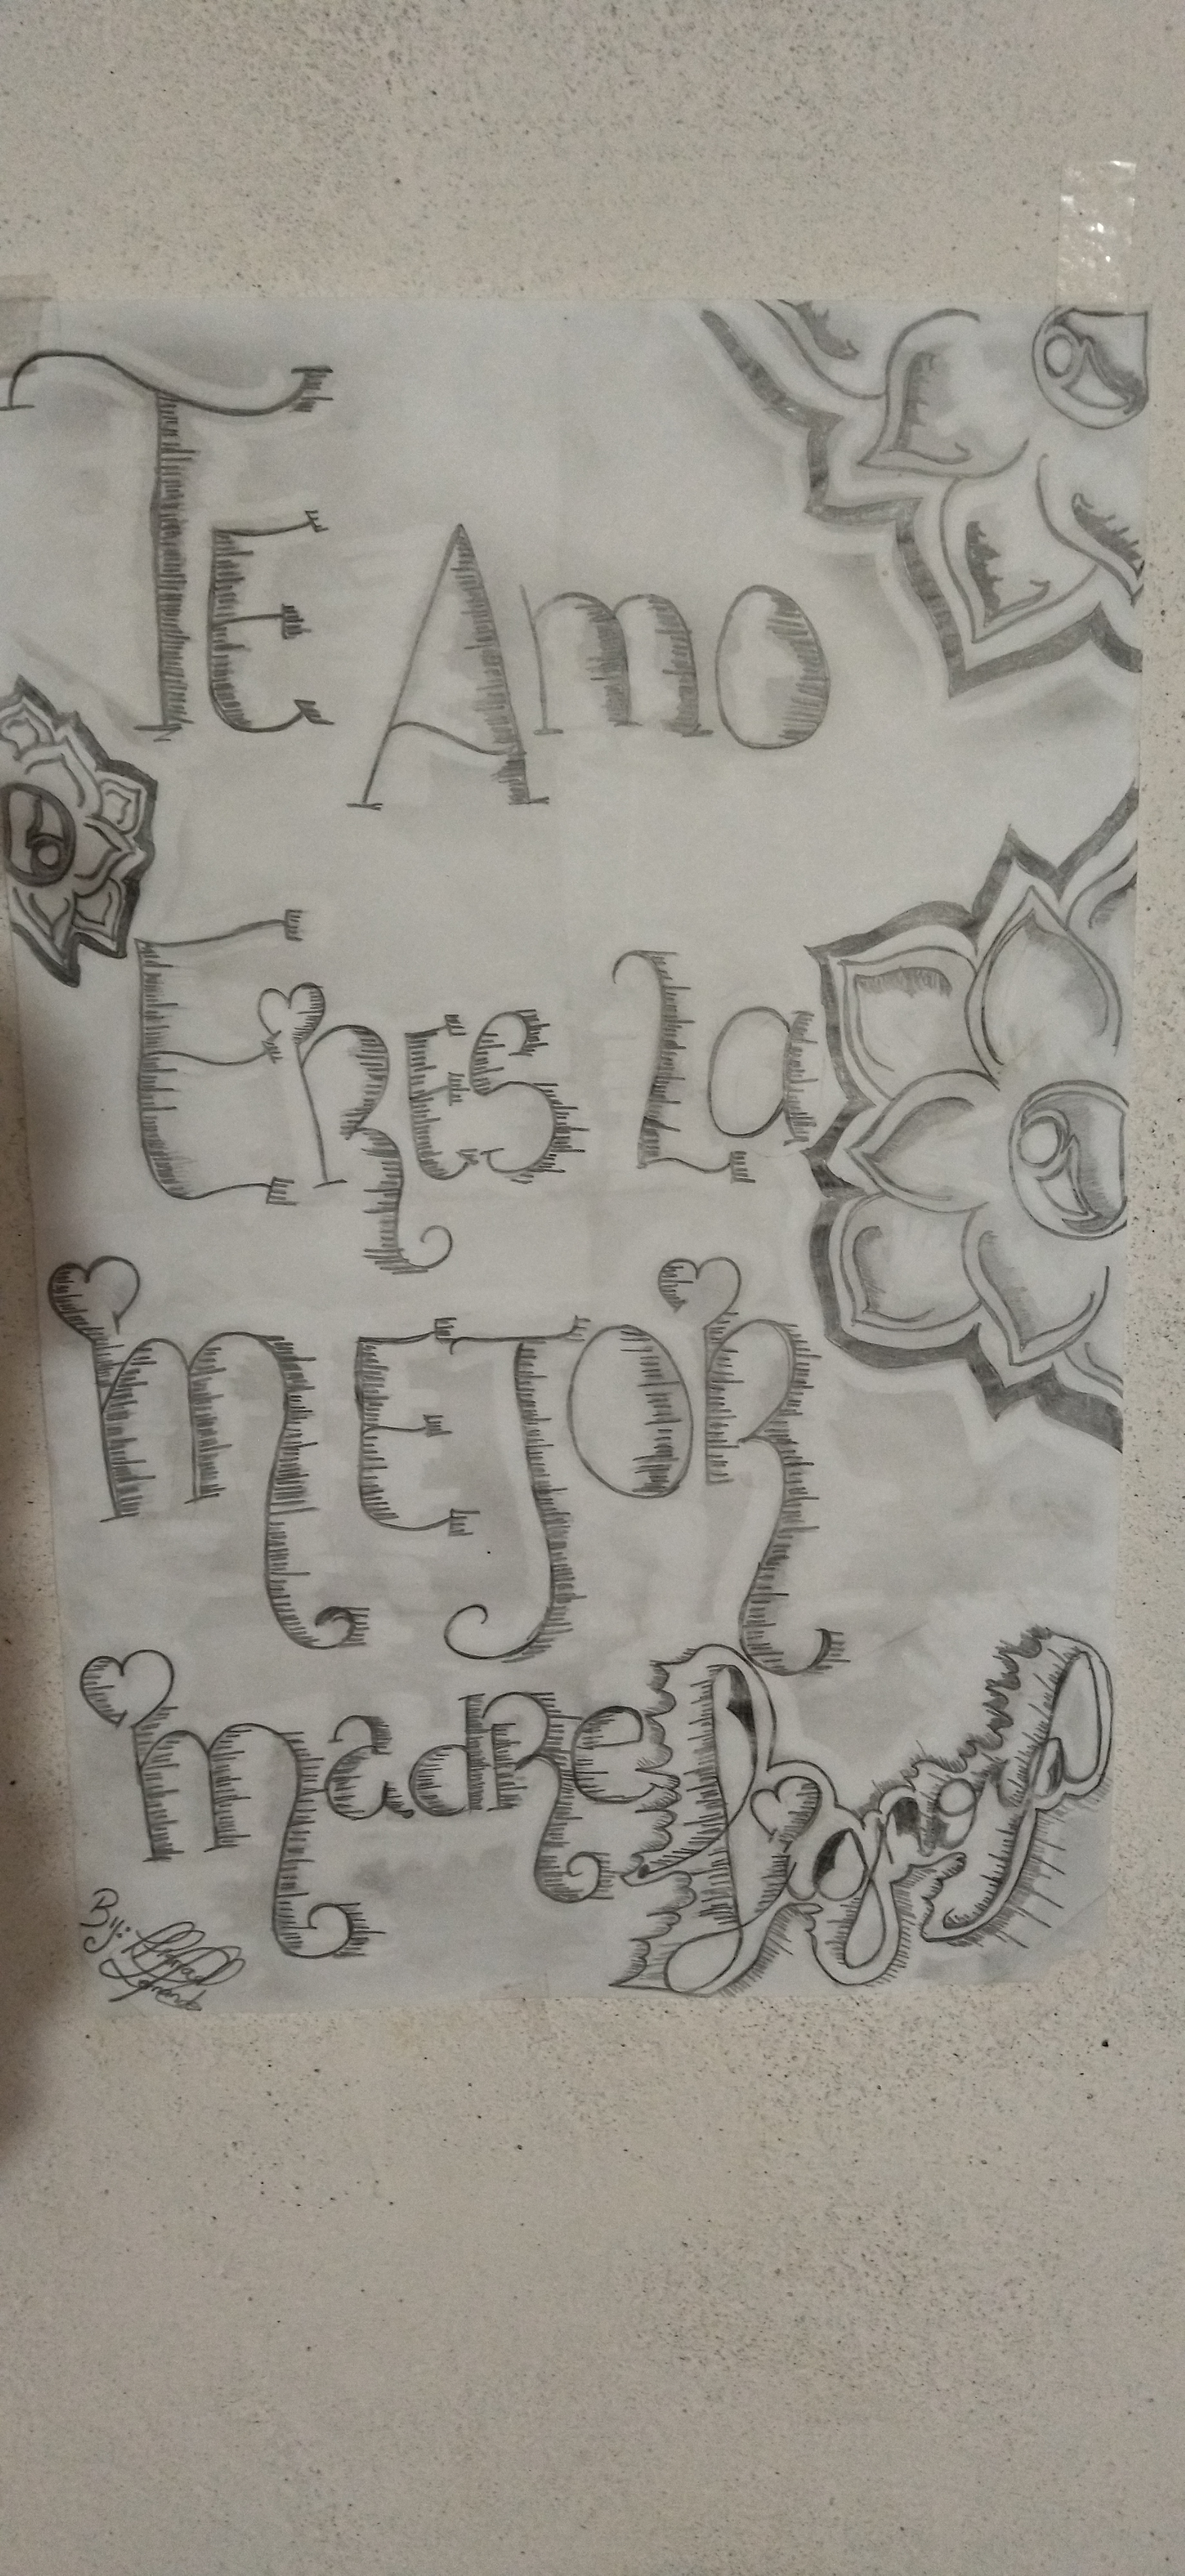 TE Amo
ERES La
mEJOR
madRE
By: